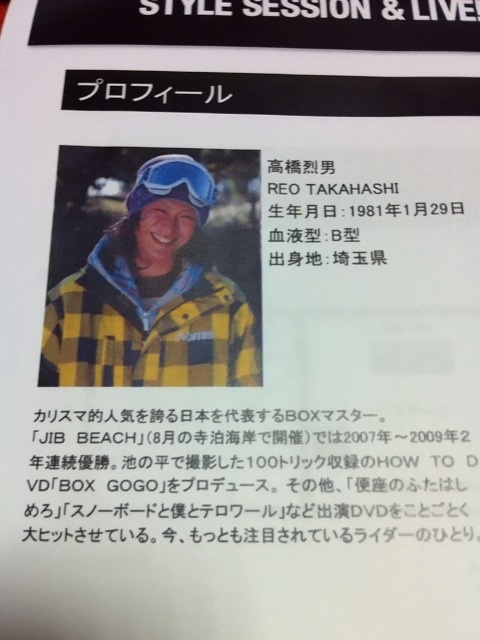 STYLE SESSION & LIVE!
プロフィール
高橋烈男
REO TAKAHASHI
生年月日：1981年1月29日
血液型：B型
出身地：埼玉県
カリスマ的人気を誇る日本を代表するBOXマスター。
「JIB BEACH」（8月の寺泊海岸で開催）では2007年～2009年2
年連続優勝。池の平で撮影した100トリック収録のHOW TO D
VD「BOX GOGO」をプロデュース。その他、「便座のふたはし
めろ」「スノーボードと僕とテロワール」など出演DVDをことごとく
大ヒットさせている。今、もっとも注目されているライダーのひとり。